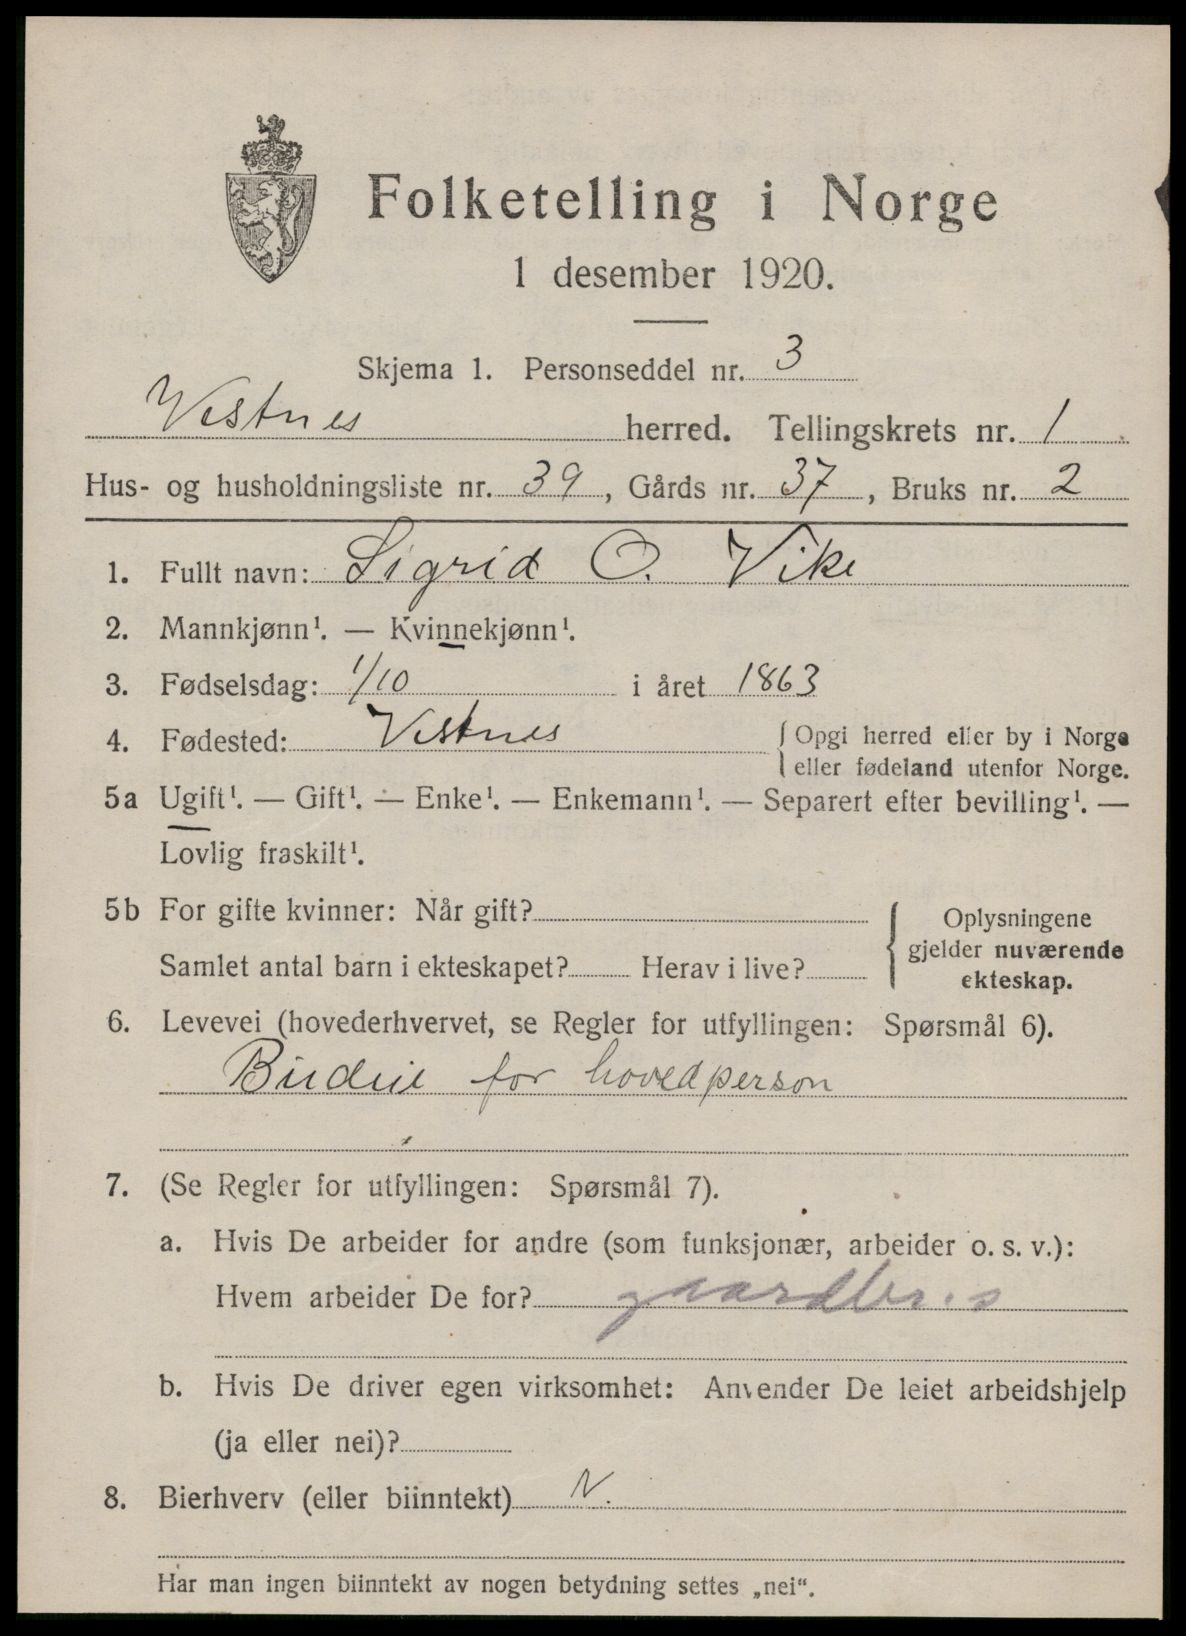 Folketelling i Norge
1 desember 1920.
Skjema 1. Personseddel nr. 3
Vestnes herred. Tellingskrets nr. 1
Hus- og husholdningsliste nr. 39, Gårds nr. 37, Bruks nr. 2
1. Fullt navn: Sigrid O. Vike
2. Mannkjønn¹. — Kvinnekjønn¹.
3. Fødselsdag: 1/10 i året 1863
4. Fødested: Vestnes {Opgi herred eller by i Norge
eller fødeland utenfor Norge.
5a Ugift¹. — Gift¹. — Enke¹. — Enkemann¹. — Separert efter bevilling¹. —
Lovlig fraskilt¹.
5b For gifte kvinner: Når gift?
Samlet antal barn i ekteskapet? Herav i live?
{Oplysningene
gjelder nuværende
ekteskap.
6. Levevei (hovederhvervet, se Regler for utfyllingen: Spørsmål 6).
Budeie for hovedperson
7. (Se Regler for utfyllingen: Spørsmål 7).
a. Hvis De arbeider for andre (som funksjonær, arbeider o. s. v.):
Hvem arbeider De for? gaardbr.s
b. Hvis De driver egen virksomhet: Anvender De leiet arbeidshjelp
(ja eller nei)?
8. Bierhverv (eller biinntekt) N.
Har man ingen biinntekt av nogen betydning settes „nei“.